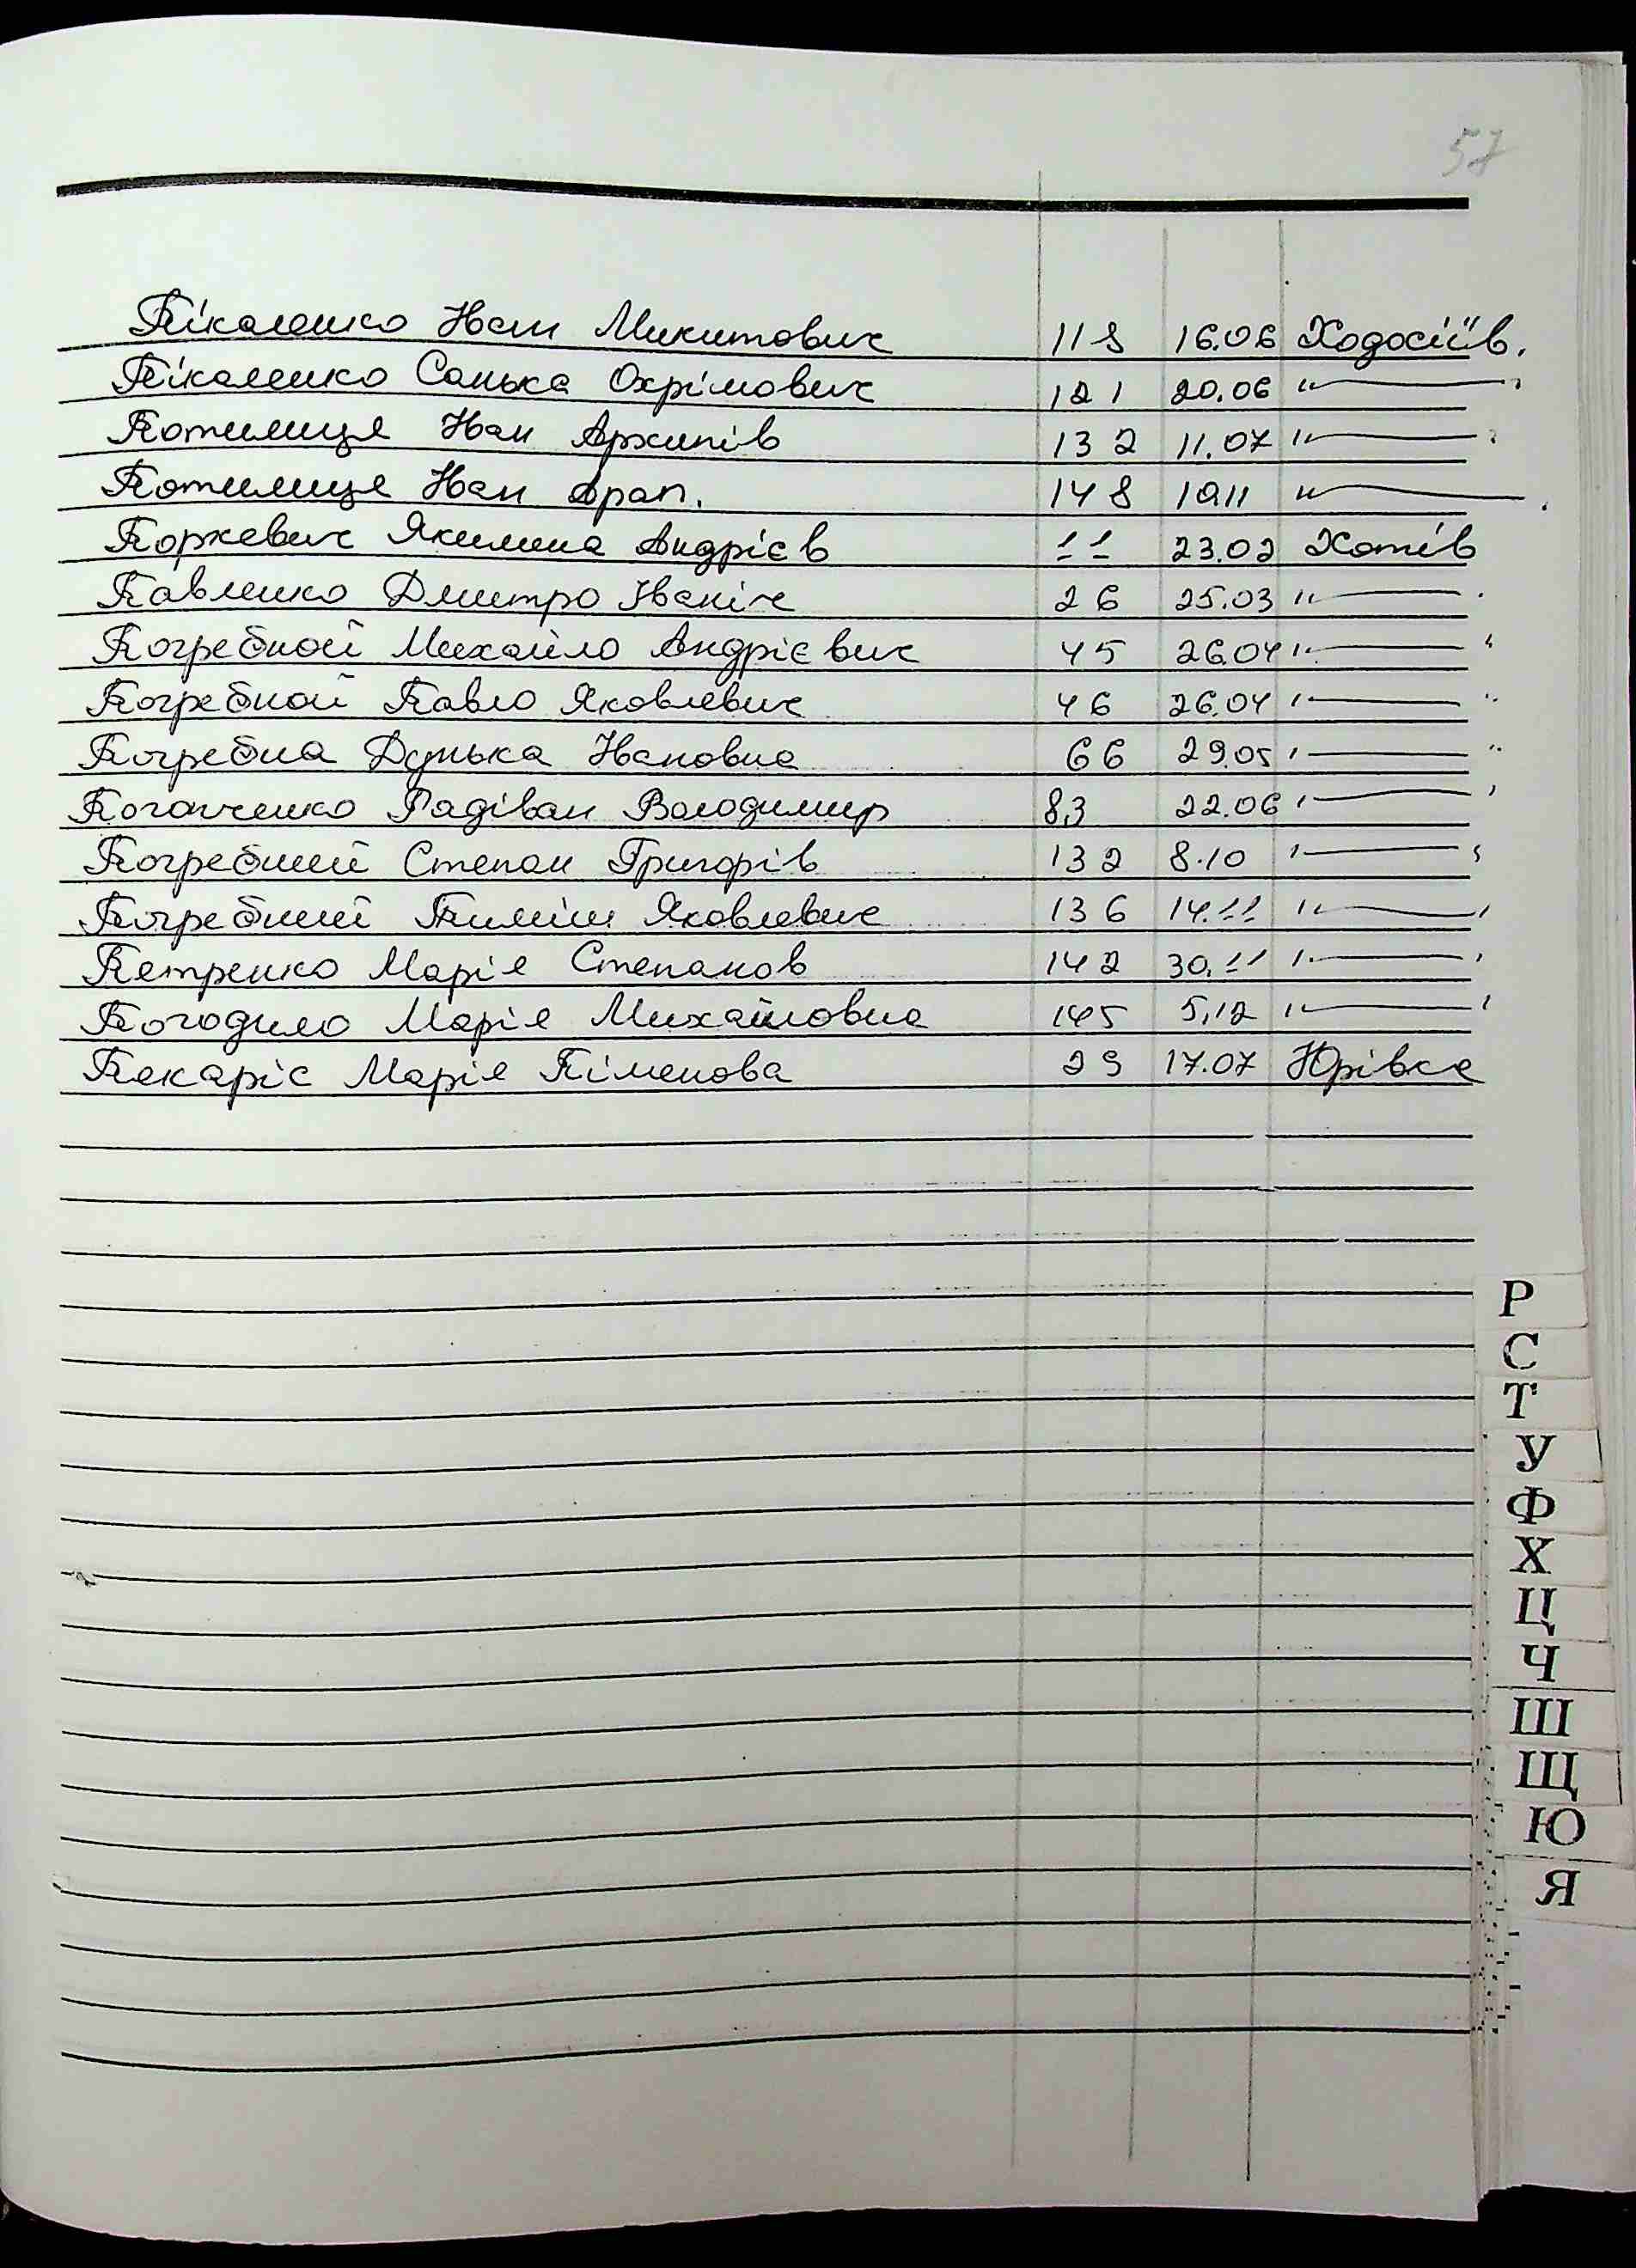 57
Пікаленко Іван Микитович 118 16.06 Ходосіїв.
Пікаленко Санька Охрімович 121 20.06 "—"
Потилиця Іван Архипів 132 11.07 "—"
Потилиця Іван Арап. 148 19.11 "—"
Поркевич Якилина Андрієв 11 23.02 Хотів
Павленко Дмитро Іваніч 26 25.03 "—"
Погребной Михайло Андрієвич 45 26.04 "—"
Погребной Павло Яковлевич 46 26.04 "—"
Погребна Дунька Івановна 66 29.05 "—"
Радіван Володимир 83 22.06 "—"
Погребний Степан Григорів 132 8.10 "—"
Погребний Пилип Яковлевич 136 14.11 "—"
Петренко Марія Степанов 142 30.11 "—"
Погодило Марія Михайловна 145 5,12 "—"
Пекаріс Марія Піменова 29 17.07 Юрівка
Р
С
Т
У
Ф
Х
Ц
Ч
Ш
Щ
Ю
Я